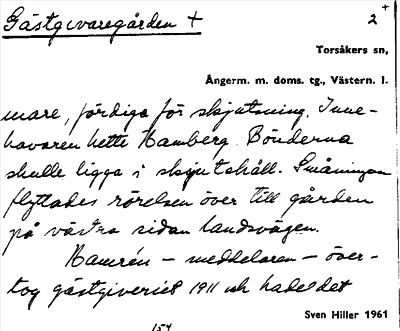 Gästgivaregården +
2+
Torsåkers sn,
Ångerm. m. doms. tg., Västern. l.
mare, färdiga för skjutsning. Inne-
havaren hette Hamberg. Bönderna
skulle ligga i skjutshåll. Småningom
flyttades rörelsen över till gården
på västra sidan landsvägen.
Hamrén – meddelaren – över-
tog gästgiveriet 1911 och hade det
Sven Hiller 1961
154